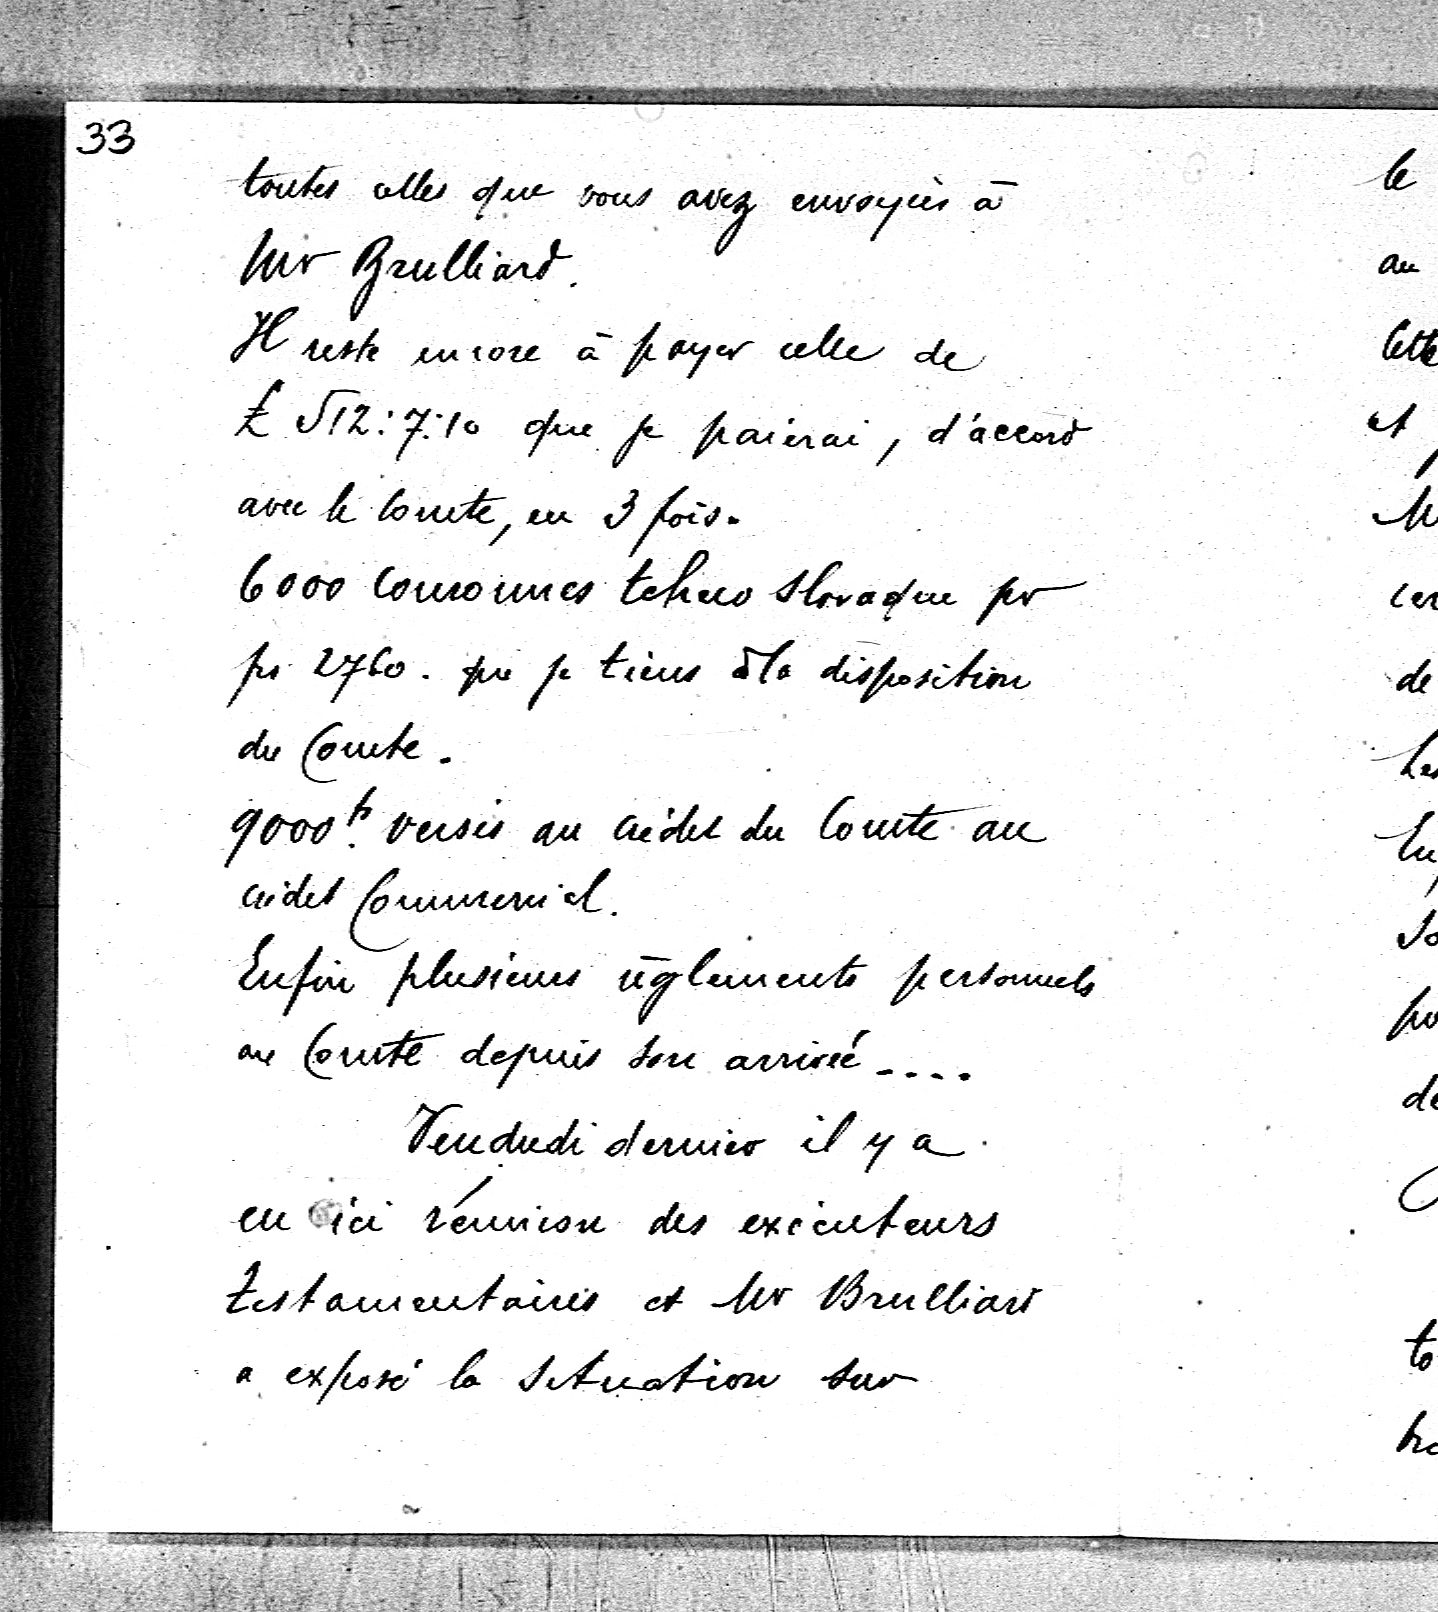 33
toutes celles que vous avez envoyées à
Mr Brulliard.
Il reste encore à payer celle de
£ 512:7:10 que je paierai, d'accord
avec le Comte, en 3 fois.
6000 Couronnes tcheco slovaque pr
frs 2760. que je tiens à la disposition
du Comte.
9000 frs. versés au crédit du Comte au
crédit Commercial.
Enfin plusieurs règlements personnels
au Comte depuis son arrivée....
Vendredi dernier il y a
eu ici réunion des exécuteurs
testamentaires et Mr Brulliard
a exposé la situation sur
le
au
Cette
et
de
to